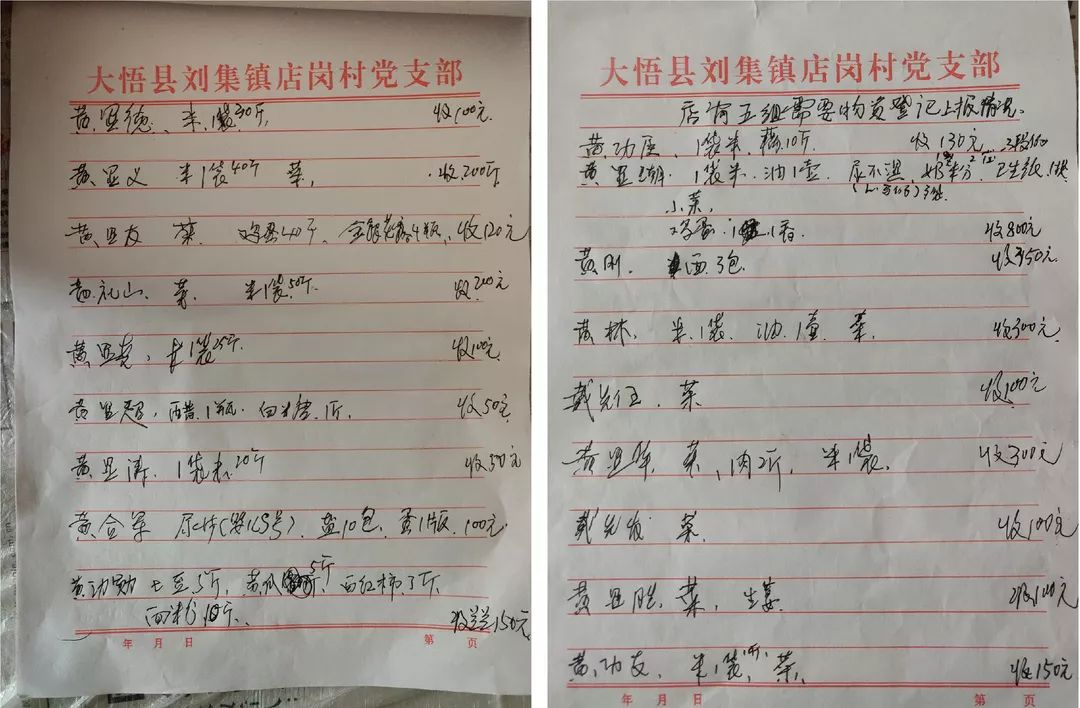 大悟县刘集镇店岗村党支部
黄显德、米1袋30斤, 收100元
黄显义 米1袋40斤 菜, 收200斤
黄显友 菜 鸡蛋40斤, 4瓶, 收120元
黄礼山、菜、 米1袋50斤 收200元
黄显亮, 1袋25斤 收100元
黄显超, 醋1瓶. 白糖1斤 收50元
黄显涛, 1袋米20斤 收50元
黄合军 尿不湿( 号), 盐10包, 蛋1版, 100元
黄功勋 土豆5斤, 黄瓜 5斤 西红柿3斤
面粉10斤. 收 150元
年 月 日 第 页
大悟县刘集镇店岗村党支部
店岗五组需要物资登记上报情况.
黄功 、1袋米、 10斤 收130元
黄显 、1袋米、油1壶. 尿不湿, 奶粉 卫生纸
小菜,
鸡蛋 收800元
黄刚. 面3包 收350元
黄林、米1袋、油1壶、菜, 收300元
戴先 、菜 收100元
黄显华 菜, 肉2斤, 米1袋. 收300元
戴先发 菜. 收100元
黄显胜, 菜, 生姜. 收100元
黄功友, 米1袋10斤, 菜, 收150元
年 月 日 第 页